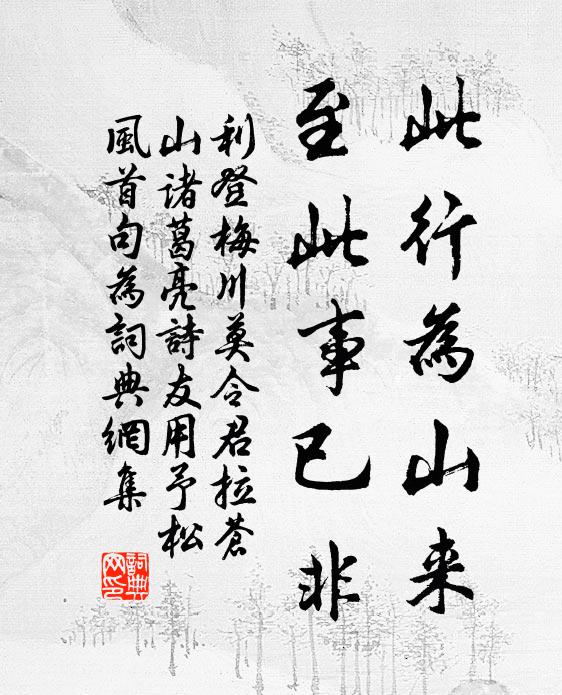 此行為山来
至此事已非
利登梅川莫令君拉蒼
山诸葛亮詩友用予松
風首句為詞典網集
詞典网印